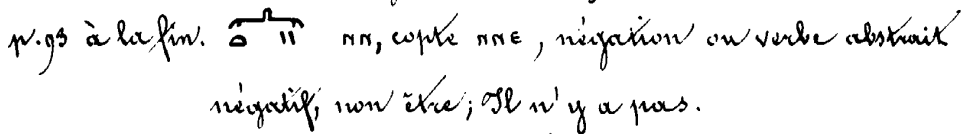 p. 93 à la fin. 𓂜 𓏏 𓏭 nn, copte nne, négation ou verbe abstrait
négatif, non être; Il n'y a pas.